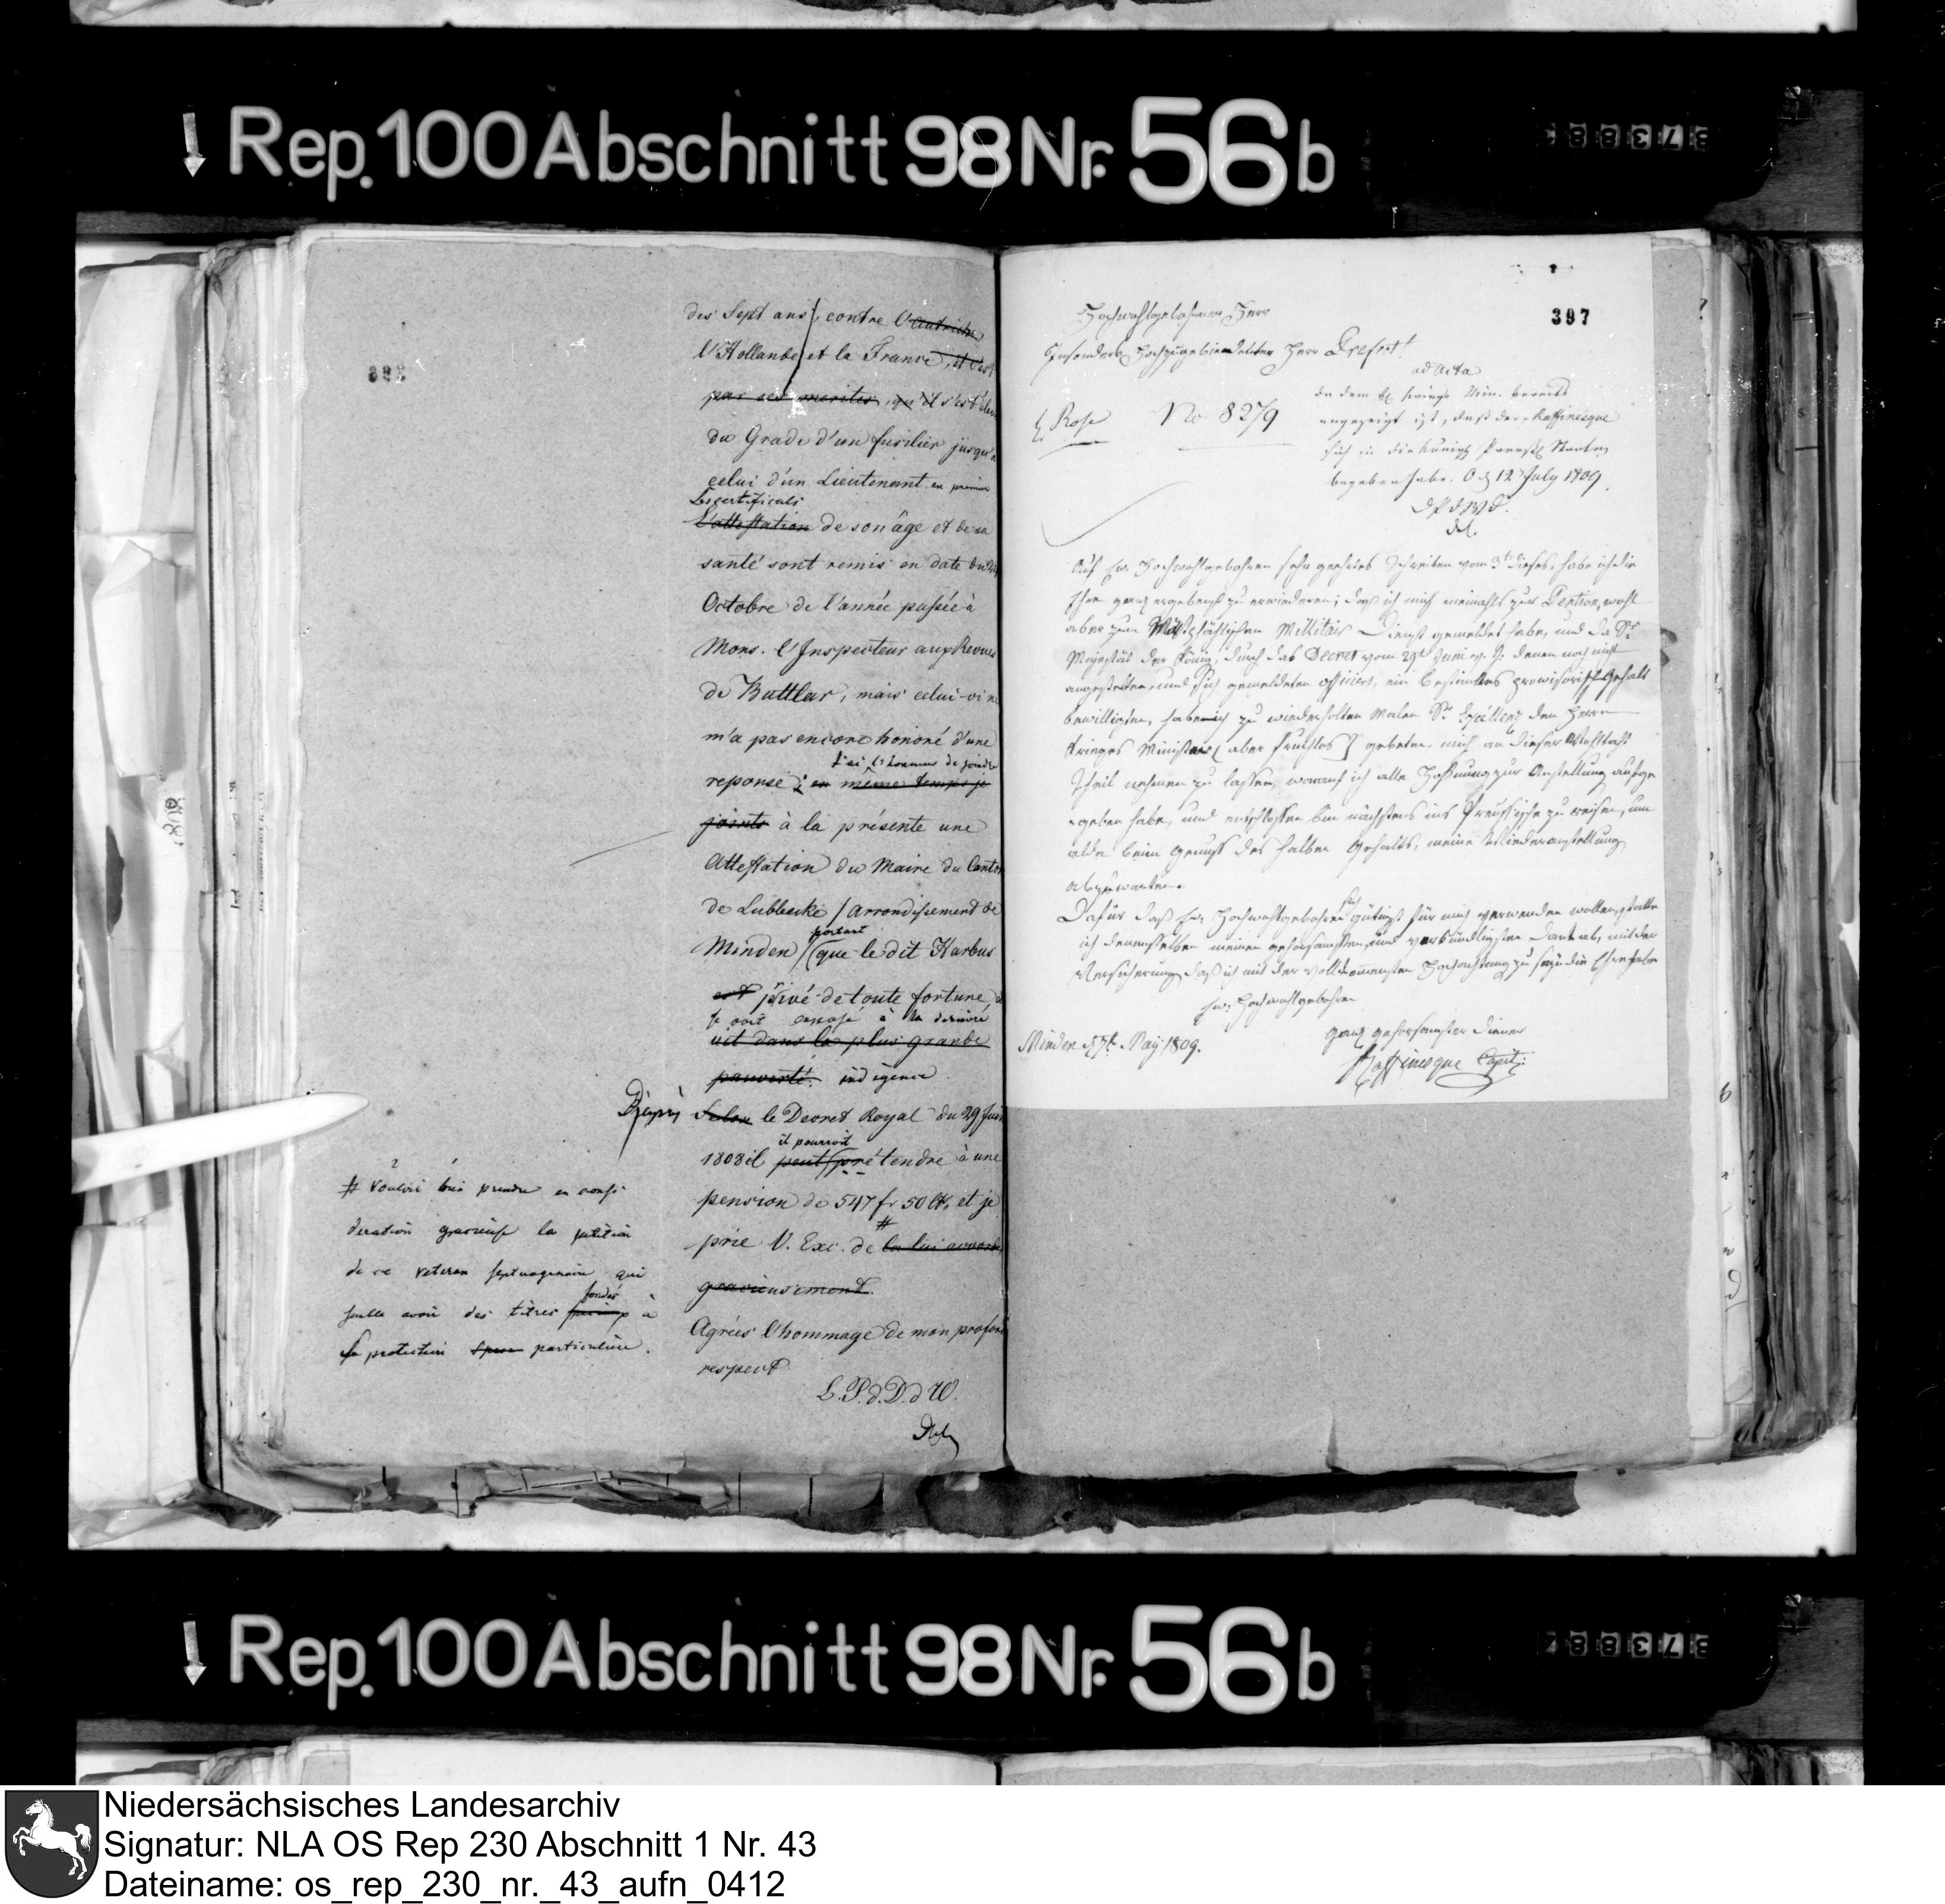 Rep. 100 Abschnitt 98 Nr. 56 b
des Sept ans, contre l'Autriche,
l'Hollande et la France, et c'est
par ses merites, qu'il s'est élevé
du Grade d'un fusilier jusqu'à
celui d'un Lieutenant en premier
Les certificats
L'attestation de son âge et de sa
santé sont remis en date du
Octobre de l'année passée à
Mons. l'Inspecteur aux Revues
de Buttlar, mais celui-ci ne
m'a pas encore honoré d'une
j'ai l'honneur de joindre
reponse; en même temps je
joints à la présente une
Attestation du Maire du Canton
de Lubbecke / Arrondissement de
portant
Minden / que le dit Harbus
est privé de toute fortune, et
se voit exposé à la dernière
vit dans la plus grande
pauvreté. indigence.
D'après Selon le Decret Royal du 29 Juin
il pourroit
1808 il peut prétendre à une
pension de 547 fr 50 Cts, et je
prie V. Exc. de # la lui accorder
gracieusement.
Agrées l'hommage de mon profond
respect
L. P. d. D. d. W.
# vouloir bien prendre en consi
deration gracieuse la petition
de ce veteran septuagenaire qui
fondés
semble avoir des titres à
Sa protection particulière.
397
Hochwohlgebohrner Herr
Insonders Hochzuverehrender Herr Prefect!
ad acta
da dem H. Kriegs Min. bereits
angezeigt ist, daß der Raffinesque
sich in die Königl. Preuß. Staaten
begeben habe. O. d. 12 July 1809.
d P d W D.
Rose No 8279
Auf Ew. Hochwohlgebohren sehr geehrtes Schreiben vom 3t dieses, habe ich die
Ehre ganz ergebenst zu erwiedern; daß ich mich niemahls zur Pention, wohl
aber zum Westphälischen Militair Dienst gemeldet habe, und da Sr
Majestät der König, durch das Decret vom 29t Juni v. J. denen noch nicht
angestelten, und sich gemeldeten officiers, ein bestimtes provisorisch Gehalt
bewilligten, habe ich zu wiederholten Malen Sr Excellenz den Herrn
Krieges Minister (aber fruchtlos) gebeten mich an dieser Wohlthat
Theil nehmen zu lassen, worauf ich alle Hoffnung zur Anstellung aufge
geben habe, und entschlossen bin nächstens ins Preussische zu reisen, um
alda beim Genuss des halben Gehalts, meine Wiederanstellung
abzuwarten.
Dafür daß Ew. Hochwohlgebohren sich gütigst für mich verwenden wollen, statte
ich denenselben meinen gehorsamsten und verbindlichsten Dank ab, mit der
Versicherung daß ich mit der vollkommensten Hochachtung zu seyn die Ehre habe
Ew. Hochwohlgebohren
Minden d 7t May 1809.
ganz gehorsamster Diener
Raffinesque Capit:
Rep. 100 Abschnitt 98 Nr. 56 b
Niedersächsisches Landesarchiv
Signatur: NLA OS Rep 230 Abschnitt 1 Nr. 43
Dateiname: os_rep_230_nr._43_aufn_0412